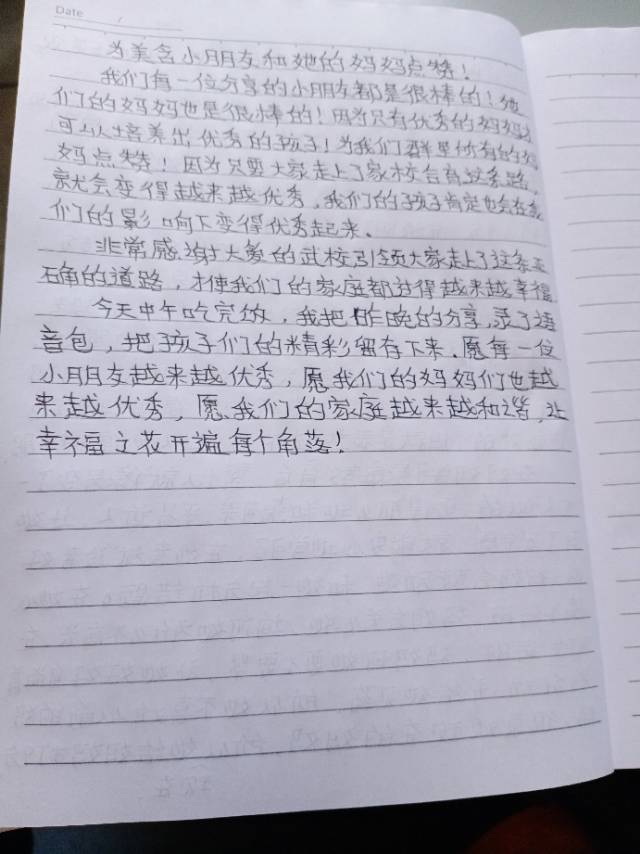 Date
为美含小朋友和她的妈妈点赞!
我们每一位分享的小朋友都是很棒的!他
们的妈妈也是很棒的!因为只有优秀的妈妈才
可以培养出优秀的孩子!为我们群里所有的妈
妈点赞!因为只要大家走上了家校合育这条路,
就会变得越来越优秀,我们的孩子肯定也会在我
们的影响下变得优秀起来。
非常感谢大象的武校引领大家走上了这条正
确的道路,才使我们的家庭都过得越来越幸福
今天中午吃完饭,我把昨晚的分享,录了语
音包,把孩子们的精彩留存下来.愿每一位
小朋友越来越优秀,愿我们的妈妈们也越
来越优秀,愿我们的家庭越来越和谐,让
幸福之花开遍每个角落!